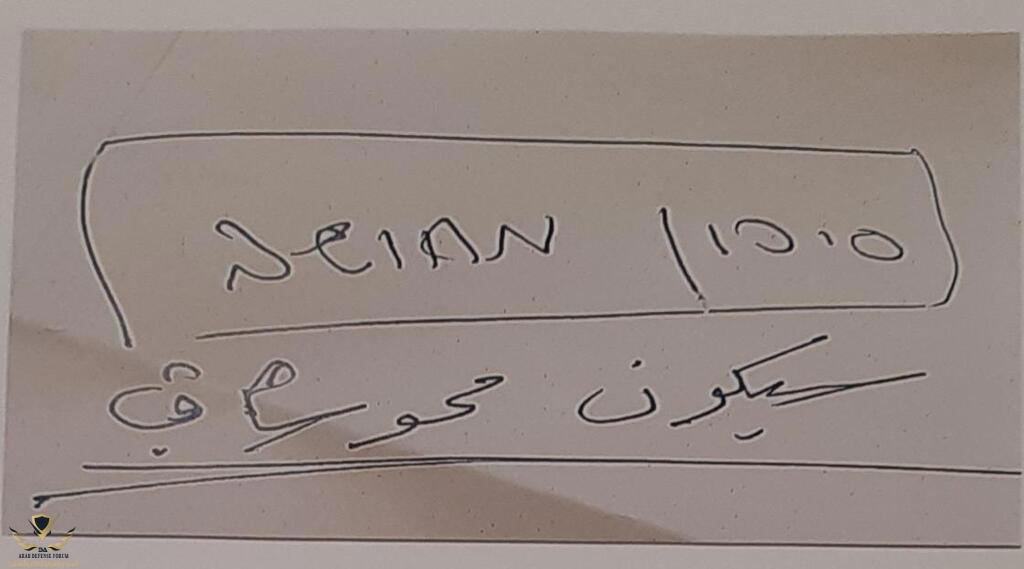 סיכון מחושב
سيكون
DA
ARAB DEFENSE FORUM